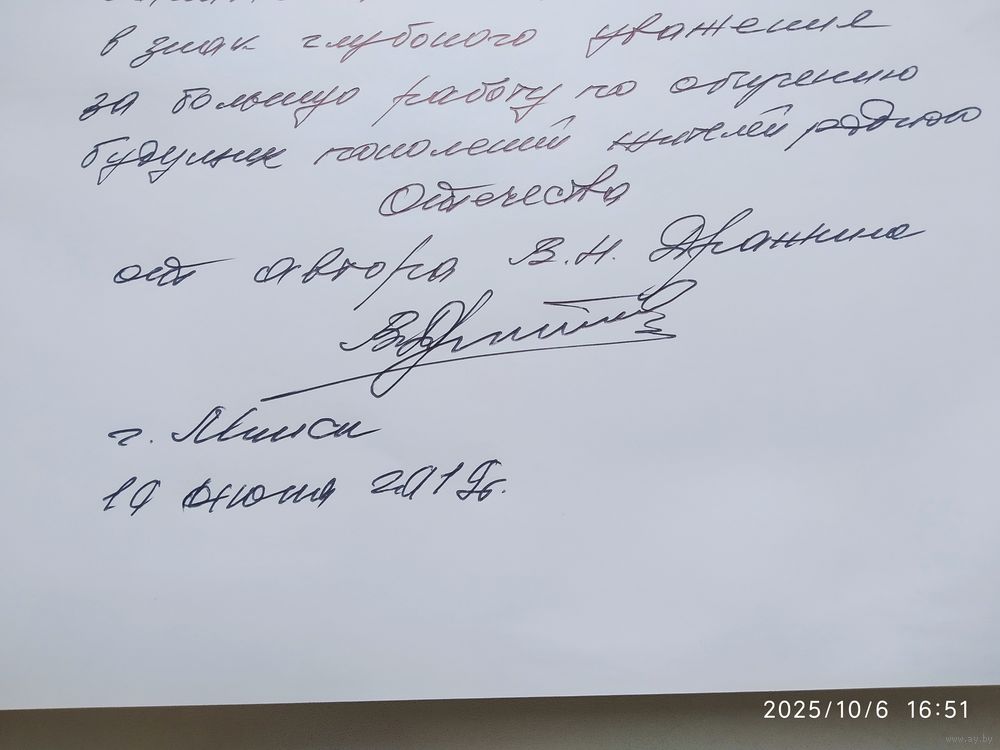 в знак глубокого уважения
за большую работу по обучению
будущих поколений жителей родного
Отечества
от автора В. Н.
г. Минск
10 июня 2019г.
2025/10/6 16:51
www.ay.by